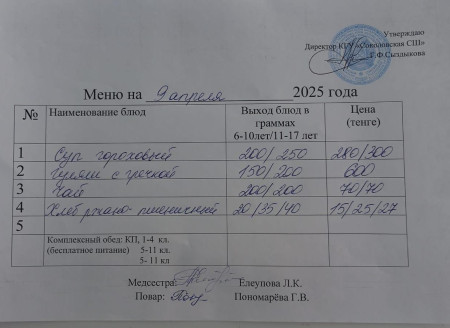 Утверждаю
Директор КГУ «Соколовская СШ»
Г.Ф.Сыздыкова
Меню на 9 апреля 2025 года
№ Наименование блюд Выход блюд в граммах 6-10лет/11-17 лет Цена (тенге)
1 Суп гороховый 200/250 280/300
2 Гуляш с гречкой 150/200 600
3 Чай 200/200 70/70
4 Хлеб ржано-пшеничный 20/35/40 15/25/27
5
Комплексный обед: КП, 1-4 кл.
(бесплатное питание) 5-11 кл.
5- 11 кл
Медсестра: Елеупова Л.К.
Повар: Пономарёва Г.В.